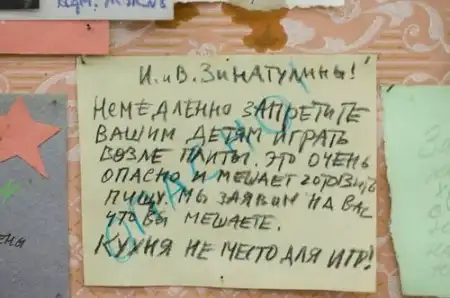 И. и В. Зинатулины!
Немедленно запретите
вашим детям играть
возле плиты. Это очень
опасно и мешает готовить
пищу. Мы заявим на вас
что вы мешаете.
Кухня не место для игр!
ОПАСНО!